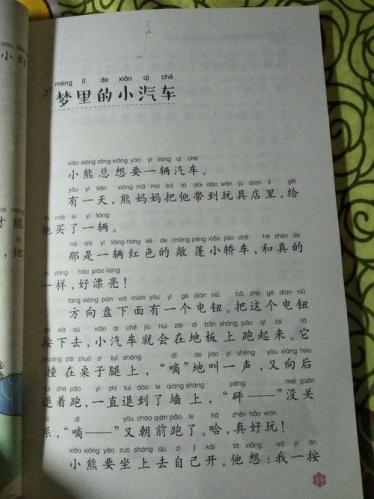 mèng lǐ de xiǎo qì chē
梦里的小汽车
xiǎo xióng zǒng xiǎng yào yí liàng qì chē
小熊总想要一辆汽车。
yǒu yì tiān xióng mā ma bǎ tā dài dào wán jù diàn lǐ gěi
有一天，熊妈妈把他带到玩具店里，给
tā mǎi le yí liàng
他买了一辆。
nà shì yí liàng hóng sè de chǎng péng xiǎo jiào chē hé zhēn de
那是一辆红色的敞篷小轿车，和真的
yí yàng hǎo piào liang
一样，好漂亮！
fāng xiàng pán xià miàn yǒu yí gè diàn niǔ bǎ zhè gè diàn niǔ
方向盘下面有一个电钮。把这个电钮
àn xià qù xiǎo qì chē jiù huì zài dì bǎn shàng pǎo qǐ lái tā
按下去，小汽车就会在地板上跑起来。它
zhuàng zài zhuō zi tuǐ shàng dī de jiào yì shēng yòu xiàng hòu
撞在桌子腿上，“嘀”地叫一声，又向后
tuì zhe pǎo yì zhí tuì dào le qiáng shàng pēng méi guān
退着跑，一直退到了墙上，“砰——”没关
xi dī yòu cháo qián pǎo le hā zhēn hǎo wán
系，“嘀——”又朝前跑了。哈，真好玩！
xiǎo xióng yào zuò shàng qù zì jǐ kāi tā xiǎng wǒ yí àn
小熊要坐上去自己开。他想：我一按
小灯
才能
他